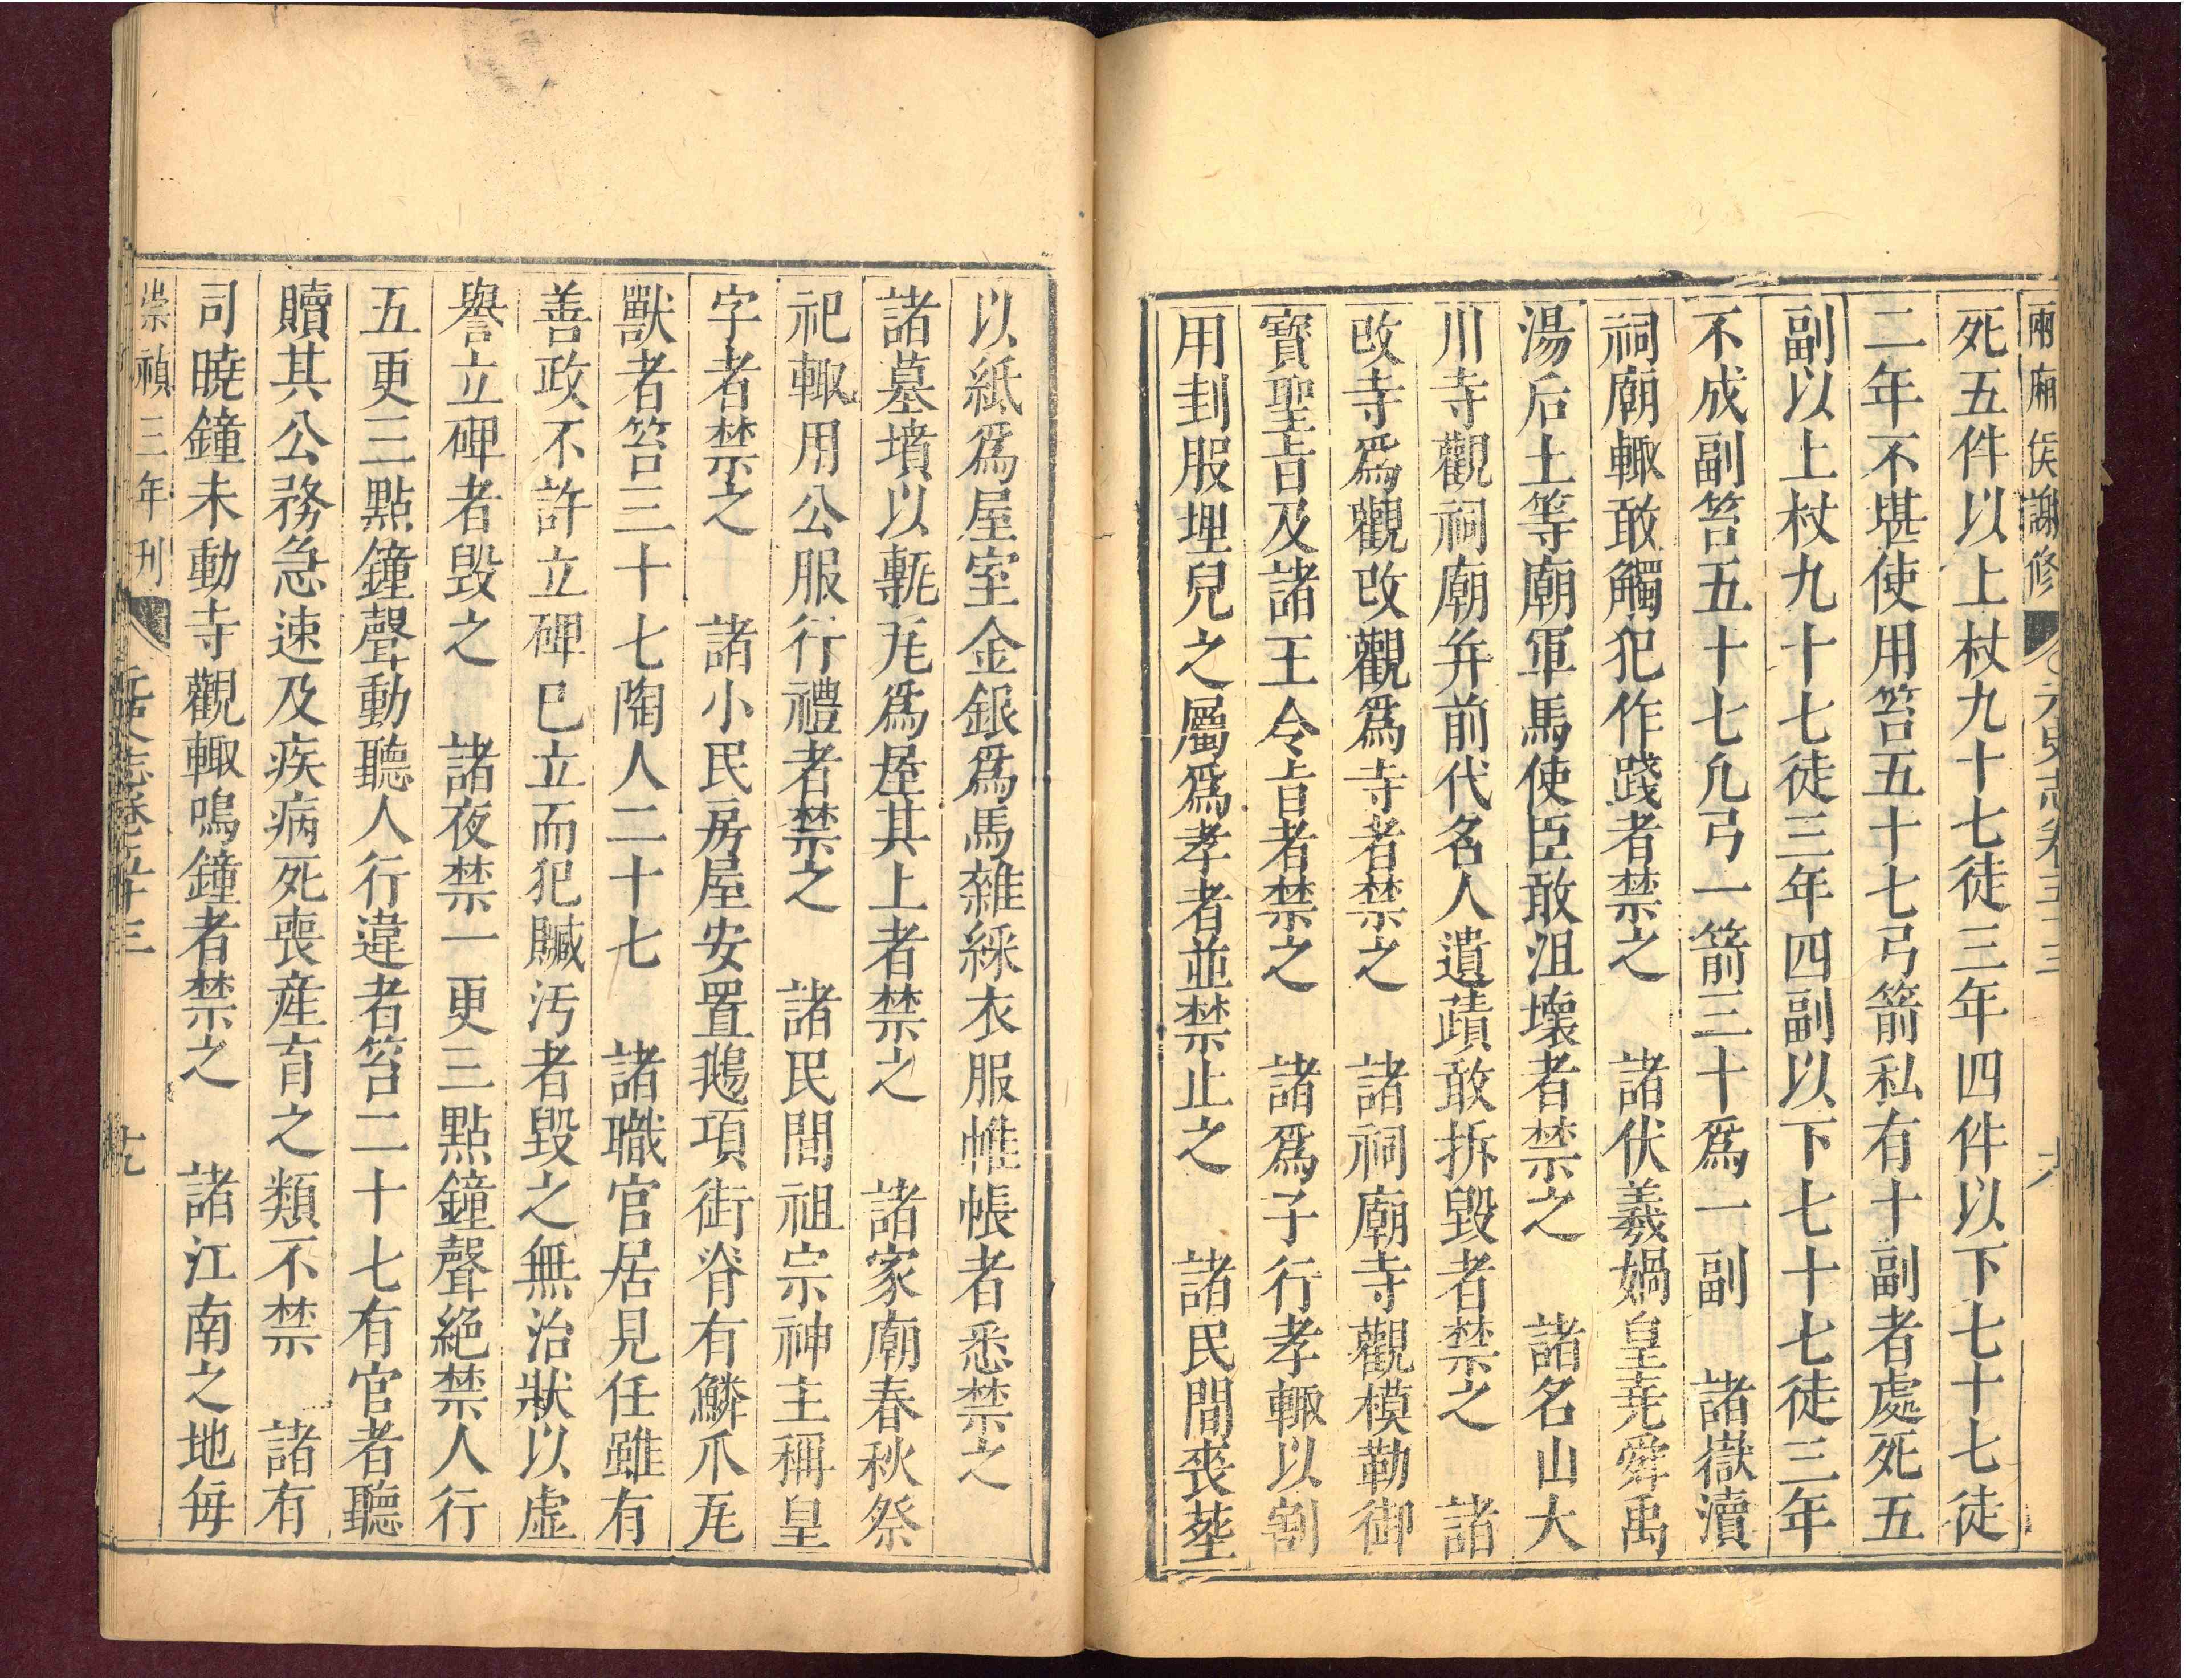 兩廂侯謝修 元史志卷五十三 十八
死五件以上杖九十七徒三年四件以下七十七徒
二年不堪使用笞五十七弓箭私有十副者處死五
副以上杖九十七徒三年四副以下七十七徒三年
不成副笞五十七凢弓一箭三十爲一副 諸嶽瀆
祠廟輙敢觸犯作踐者禁之 諸伏羲媧皇堯舜禹
湯后土等廟軍馬使臣敢沮壞者禁之 諸名山大
川寺觀祠廟并前代名人遺蹟敢拆毀者禁之 諸
改寺爲觀改觀爲寺者禁之 諸祠廟寺觀模勒御
寳聖㫖及諸王令㫖者禁之 諸爲子行孝輙以割
用刲服埋兒之屬爲孝者並禁止之 諸民間喪塟
以紙爲屋室金銀爲馬雜綵衣服帷帳者悉禁之
諸墓墳以甎瓦爲屋其上者禁之 諸家廟春秋祭
祀輙用公服行禮者禁之 諸民間祖宗神主稱皇
字者禁之 諸小民房屋安置鵝項街脊有鱗爪瓦
獸者笞三十七陶人二十七 諸職官居見任雖有
善政不許立碑巳立而犯贓汚者毀之無治狀以虛
譽立碑者毀之 諸夜禁一更三點鐘聲絶禁人行
五更三點鐘聲動聽人行違者笞二十七有官者聽
贖其公務急速及疾病死喪產育之類不禁 諸有
司曉鐘未動寺觀輙鳴鐘者禁之 諸江南之地每
崇禎三年刊 元史志卷五十三 十九